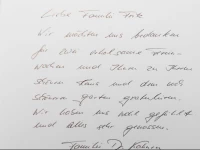 Liebe Familie Fritz
Wir möchten uns bedanken
für die erholsame Ferien-
wochen und Ihnen zu Ihrem
schönen Haus und dem
schönen garten gratulieren.
Wir haben uns wohl gefühlt
und alles sehr genossen.
Familie Dr.